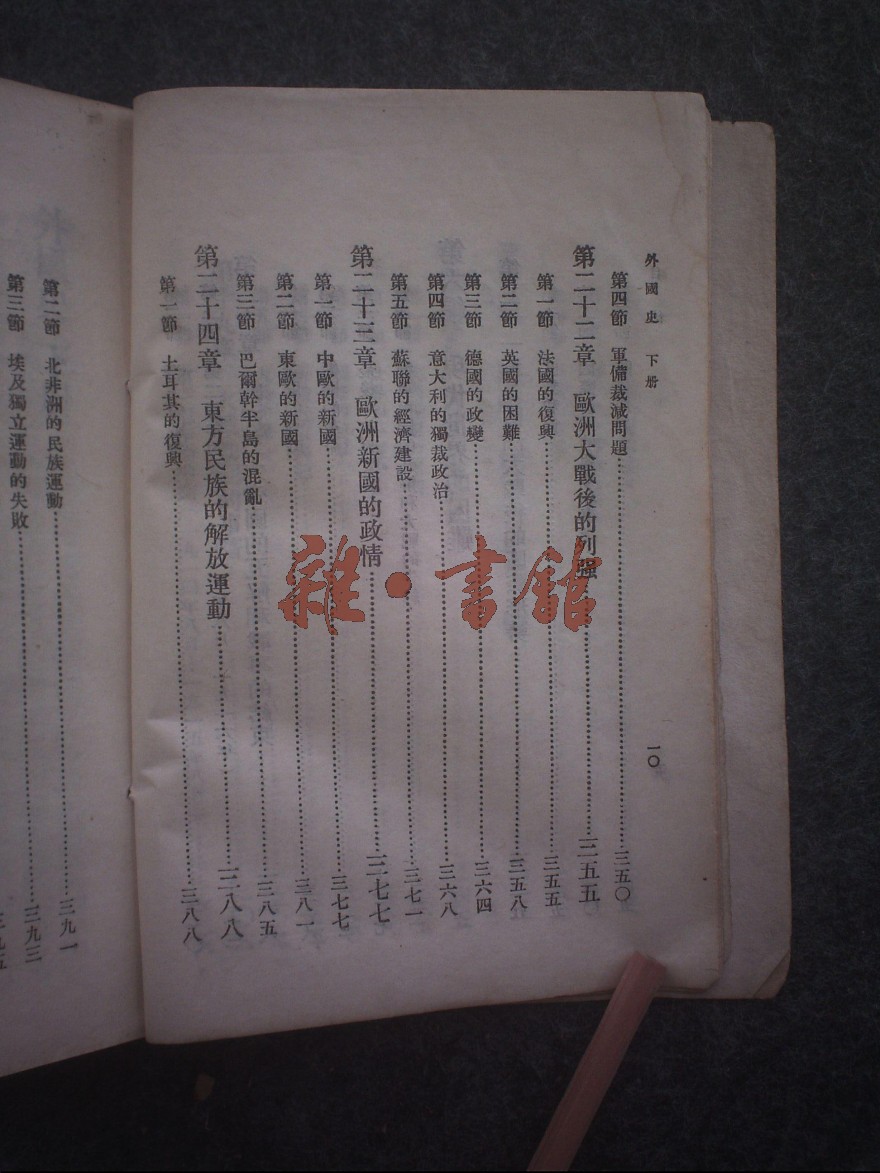 外國史 下册
一〇
第四節 軍備裁減問題……三五〇
第二十二章 歐洲大戰後的列强……三五五
第一節 法國的復興……三五五
第二節 英國的困難……三五八
第三節 德國的政變……三六四
第四節 意大利的獨裁政治……三六八
第五節 蘇聯的經濟建設……三七一
第二十三章 歐洲新國的政情……三七七
第一節 中歐的新國……三七七
第二節 東歐的新國……三八一
第三節 巴爾幹半島的混亂……三八五
第二十四章 東方民族的解放運動……三八八
第一節 土耳其的復興……三八八
第二節 北非洲的民族運動……三九一
第三節 埃及獨立運動的失敗……三九三
三九五
雜·書舘